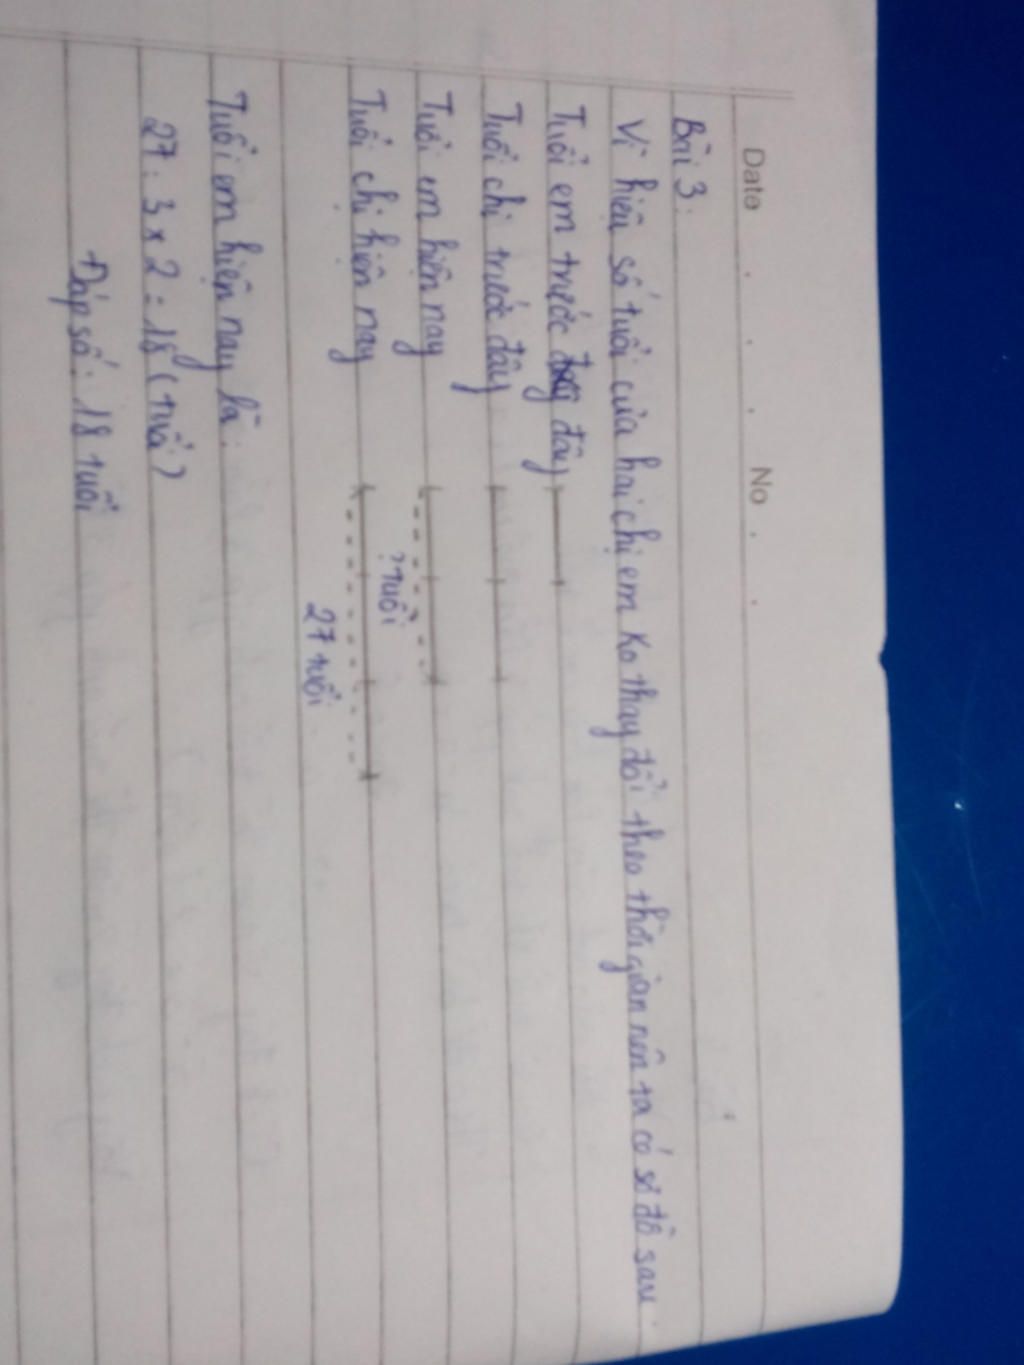 Date . . . . No . .
Bài 3:
Vì hiệu số tuổi của hai chị em ko thay đổi theo thời gian nên ta có sơ đồ sau.
Tuổi em trước đây
Tuổi chị trước đây
Tuổi em hiện nay
? tuổi
Tuổi chị hiện nay
27 tuổi
Tuổi em hiện nay là:
27 : 3 x 2 = 18 (tuổi)
Đáp số: 18 tuổi